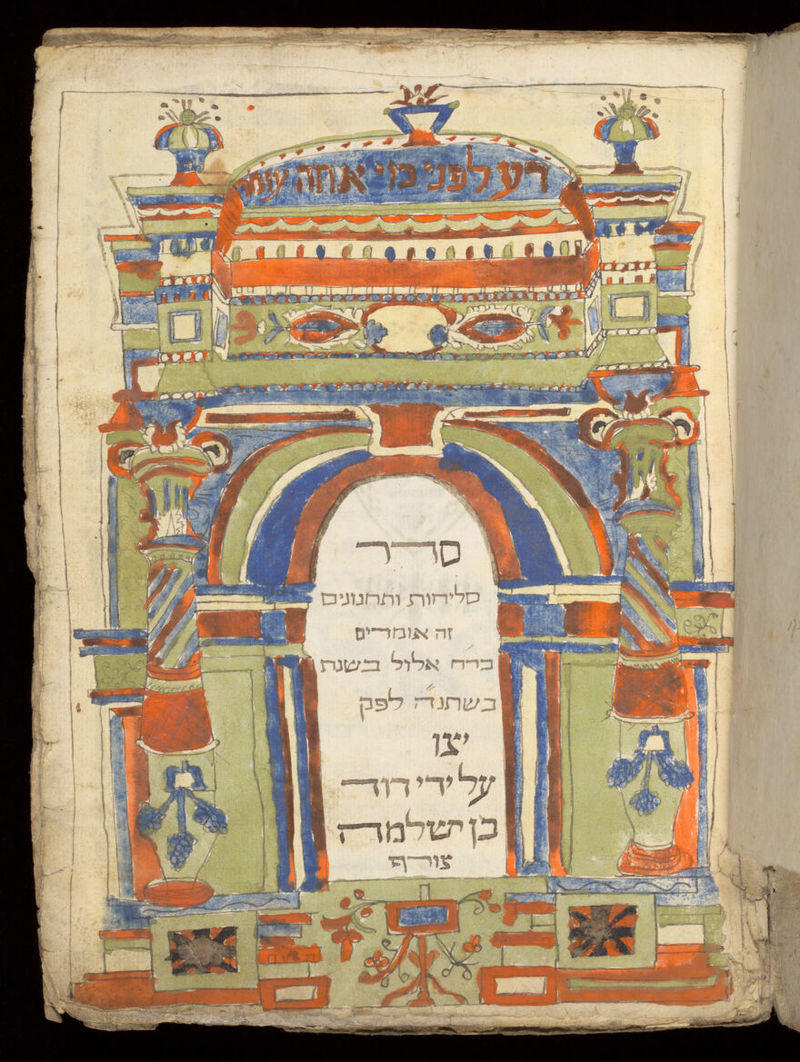 דע לפני מי אתה עומד
סדר
סליחות ותחנונים
זה אומרים
ברח אלול בשנת
בשתנה לפק
יצו
על ידי דוד
בן שלמה
צורף